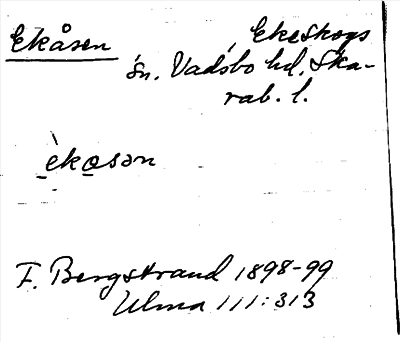 Ekåsen
Ekeskogs
sn. Vadsbo hd. Ska-
rab. l.
èkosən
F. Bergstrand 1898-99
Ulma 111:313